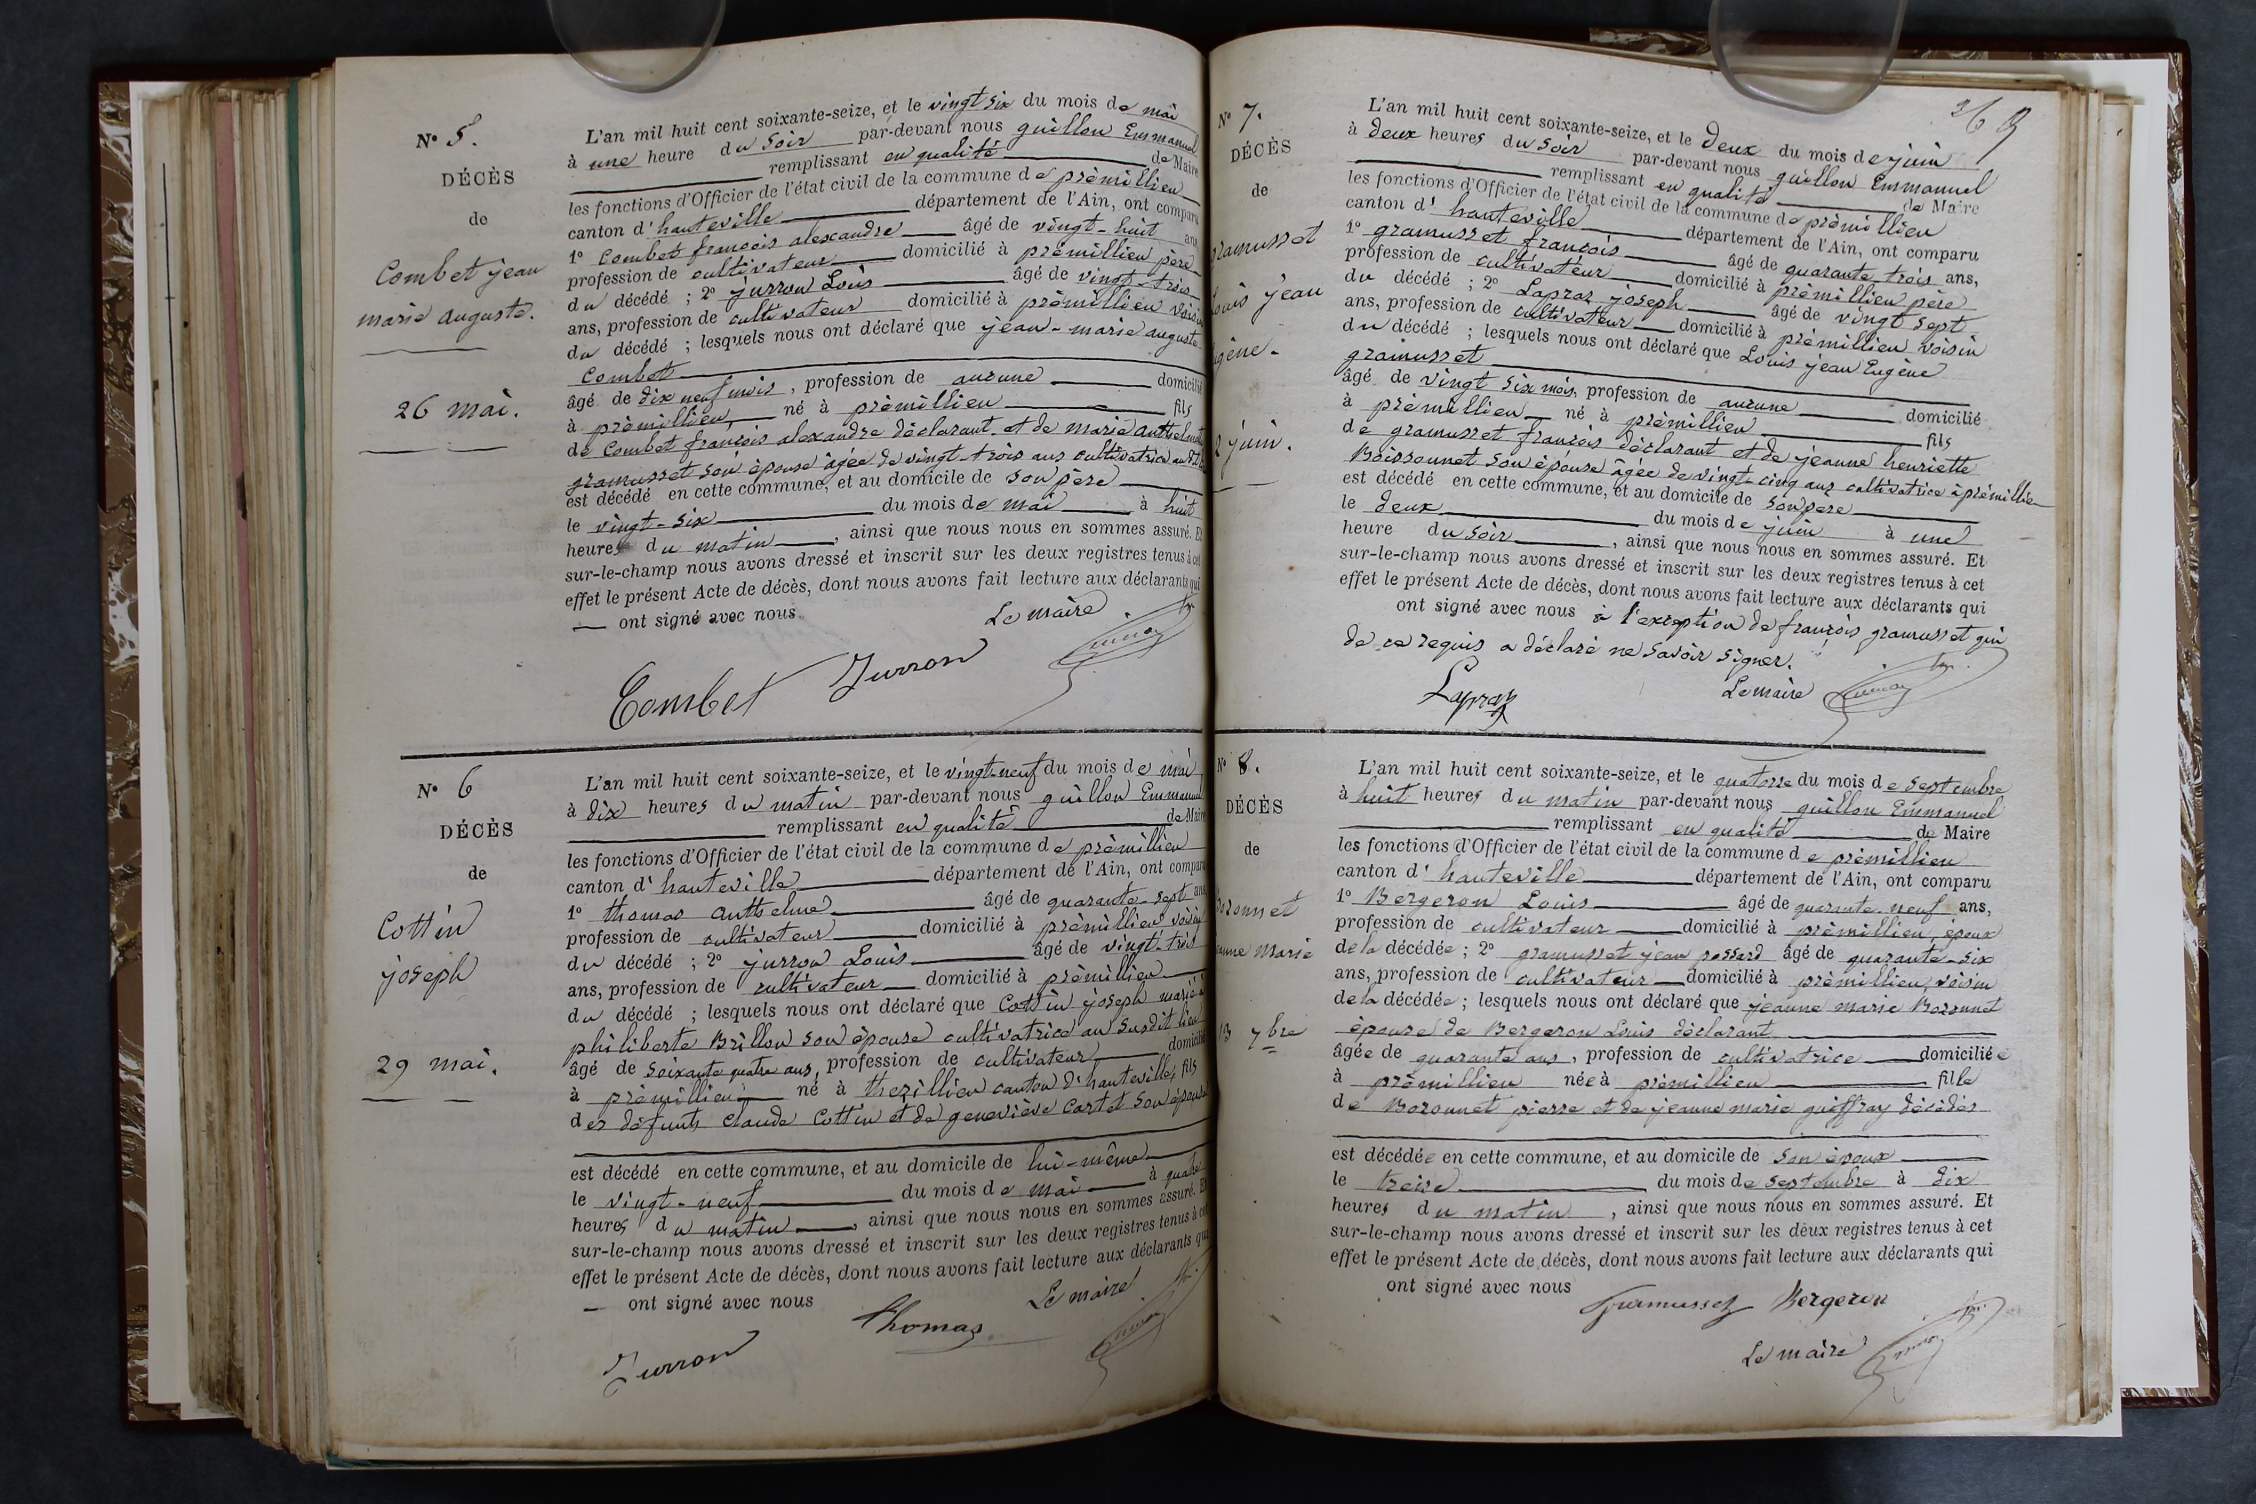 N° 5.
DÉCÈS
de
Combet jean
marie auguste.
26 mai.
L'an mil huit cent soixante-seize, et le vingt six du mois de mai
à une heure du soir par-devant nous guillon Emmanuel
remplissant en qualité de Maire
les fonctions d'Officier de l'état civil de la commune de prémillieu
canton d'hauteville département de l'Ain, ont comparu
1° Combet françois alexandre âgé de vingt-huit ans
profession de cultivateur domicilié à prémillieu père
du décédé ; 2° jurron Louis âgé de vingt-trois
ans, profession de cultivateur domicilié à prémillieu voisin
du décédé ; lesquels nous ont déclaré que jean-marie auguste
Combet
âgé de dix neuf mois, profession de aucune domicilié
à prémillieu, né à prémillieu fils
de Combet françois alexandre déclarant et de marie anthelmette
gramusset son épouse âgée de vingt-trois ans cultivatrice
est décédé en cette commune, et au domicile de son père
le vingt-six du mois de mai à huit
heures du matin, ainsi que nous nous en sommes assuré. Et
sur-le-champ nous avons dressé et inscrit sur les deux registres tenus à cet
effet le présent Acte de décès, dont nous avons fait lecture aux déclarants qui
ont signé avec nous.
Le maire
Combet Jurron
N° 6
DÉCÈS
de
Cottin
joseph
29 mai.
L'an mil huit cent soixante-seize, et le vingt-neuf du mois de mai,
à dix heures du matin par-devant nous guillon Emmanuel
remplissant en qualité de Maire
les fonctions d'Officier de l'état civil de la commune de prémillieu
canton d'hauteville département de l'Ain, ont comparu
1° thomas anthelme âgé de quarante-sept ans
profession de cultivateur domicilié à prémillieu voisin
du décédé ; 2° jurron Louis âgé de vingt-trois
ans, profession de cultivateur domicilié à prémillieu
du décédé ; lesquels nous ont déclaré que Cottin joseph marié à
philiberte Brillon son épouse cultivatrice au susdit lieu
âgé de soixante quatre ans, profession de cultivateur domicilié
à prémillieu né à thezillieu canton d'hauteville, fils
des défunts claude Cottin et de geneviève Cartet son épouse
est décédé en cette commune, et au domicile de lui-même
le vingt-neuf du mois de mai à quatre
heures du matin, ainsi que nous nous en sommes assuré. Et
sur-le-champ nous avons dressé et inscrit sur les deux registres tenus à cet
effet le présent Acte de décès, dont nous avons fait lecture aux déclarants qui
ont signé avec nous
Le maire
Thomas
Jurron
269
N° 7.
DÉCÈS
de
gramusset
Louis jean
Eugène.
2 juin.
L'an mil huit cent soixante-seize, et le deux du mois de juin
à deux heures du soir par-devant nous guillon Emmanuel
remplissant en qualité de Maire
les fonctions d'Officier de l'état civil de la commune de prémillieu
canton d'hauteville département de l'Ain, ont comparu
1° gramusset françois âgé de quarante trois ans,
profession de cultivateur domicilié à prémillieu père
du décédé ; 2° Lapraz joseph âgé de vingt sept
ans, profession de cultivateur domicilié à prémillieu voisin
du décédé ; lesquels nous ont déclaré que Louis jean Eugène
gramusset
âgé de vingt six mois, profession de aucune domicilié
à prémillieu né à prémillieu fils
de gramusset françois déclarant et de jeanne henriette
Boissonnet son épouse âgée de vingt-cinq ans cultivatrice à prémillieu
est décédé en cette commune, et au domicile de son père
le deux du mois de juin à une
heure du soir, ainsi que nous nous en sommes assuré. Et
sur-le-champ nous avons dressé et inscrit sur les deux registres tenus à cet
effet le présent Acte de décès, dont nous avons fait lecture aux déclarants qui
ont signé avec nous à l'exception de françois gramusset qui
de ce requis a déclaré ne savoir signer.
Lapraz
Le maire
N° 8.
DÉCÈS
de
Bozonnet
jeanne Marie
13 7bre
L'an mil huit cent soixante-seize, et le quatorze du mois de septembre
à huit heures du matin par-devant nous guillon Emmanuel
remplissant en qualité de Maire
les fonctions d'Officier de l'état civil de la commune de prémillieu
canton d'hauteville département de l'Ain, ont comparu
1° Bergeron Louis âgé de quarante-neuf ans,
profession de cultivateur domicilié à prémillieu, époux
de la décédée ; 2° gramusset jean âgé de quarante-six
ans, profession de cultivateur domicilié à prémillieu, voisin
de la décédée ; lesquels nous ont déclaré que jeanne marie Bozonnet
épouse de Bergeron Louis déclarant
âgée de quarante ans, profession de cultivatrice domiciliée
à prémillieu née à prémillieu fille
de Bozonnet pierre et de jeanne marie guiffray décédés
est décédée en cette commune, et au domicile de son époux
le treize du mois de septembre à dix
heures du matin, ainsi que nous nous en sommes assuré. Et
sur-le-champ nous avons dressé et inscrit sur les deux registres tenus à cet
effet le présent Acte de décès, dont nous avons fait lecture aux déclarants qui
ont signé avec nous
gramusset Bergeron
Le maire